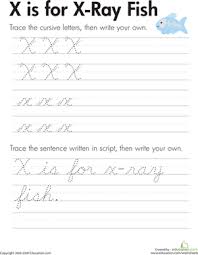 X is for X-Ray Fish
Trace the cursive letters, then write your own.
X X X
X X X
x x x
x x x
Trace the sentence written in script, then write your own.
X is for x-ray
fish.